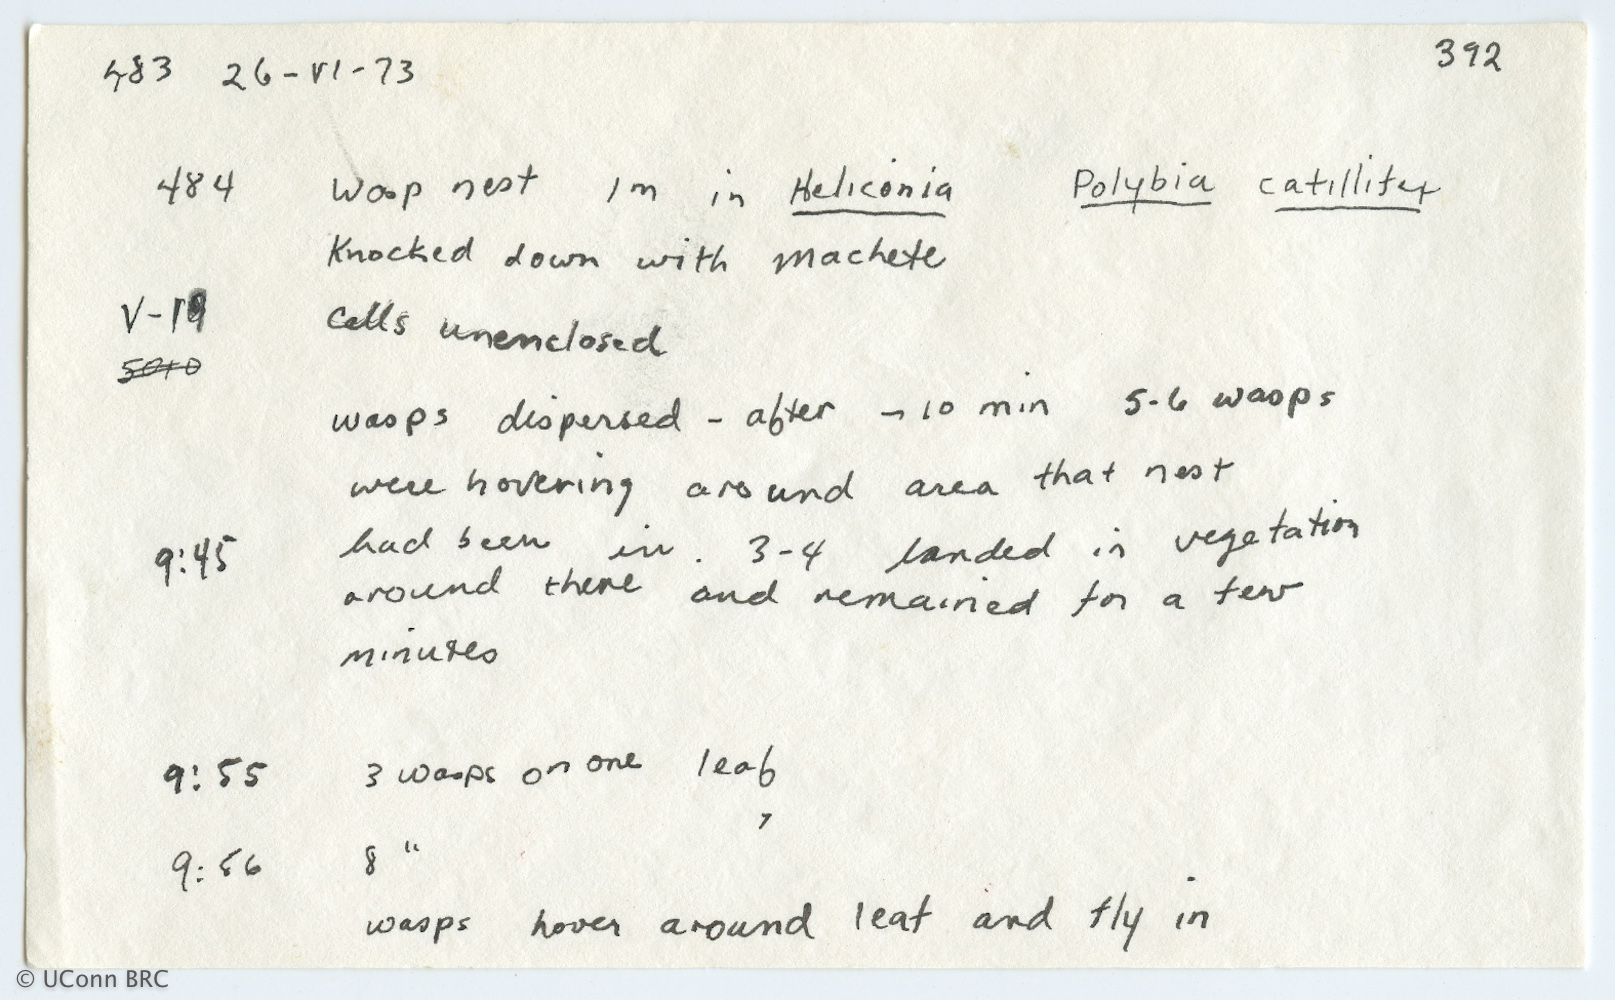 483 26-VI-73 392
484 Wasp nest 1m in Heliconia Polybia catillifex
Knocked down with machete
V-19 Cells unenclosed
wasps dispersed - after ~10 min 5-6 wasps
were hovering around area that nest
9:45 had been in. 3-4 landed in vegetation
around there and remained for a few
minutes
9:55 3 wasps on one leaf
9:56 8 "
wasps hover around leaf and fly in
© UConn BRC